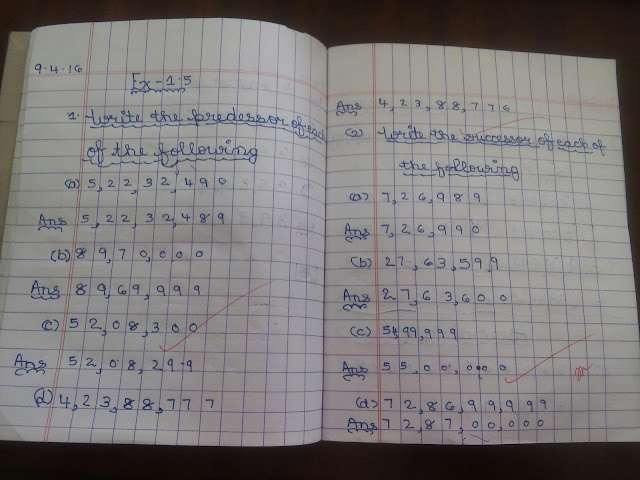 9.4.16
Ex-1.5
1. Write the predessor of each
of the following
(a) 5,22,32,490
Ans 5,22,32,489
(b) 89,70,000
Ans 89,69,999
(c) 52,08,300
Ans 52,08,299
(d) 4,23,88,777
Ans 4,23,88,776
(2) Write the successor of each of
the following
(a) 7,26,989
Ans 7,26,990
(b) 27,63,599
Ans 27,63,600
(c) 54,99,999
Ans 55,00,000
(d) 72,86,99,999
Ans 72,87,00,000